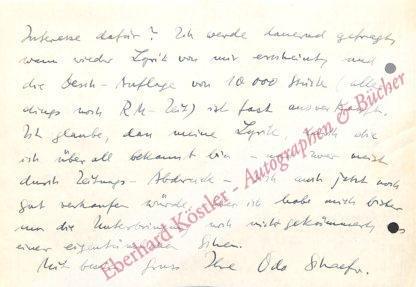 Interesse dafür? Ich werde dauernd gefragt,
wann wieder Lyrik von mir erscheint, und
die Desch-Auflage von 10 000 Stück (aller-
dings noch RM-Zeit) ist fast ausverkauft.
Ich glaube, dass meine Lyrik, durch die
ich überall bekannt bin - und zwar meist
durch Zeitungs-Abdruck - sich auch jetzt noch
gut verkaufen würde, aber ich habe mich bisher
um die Unterbringung noch nicht gekümmert, aus
einer eigentümlichen
Mit Gruss Ihr Oda Schaefer.
Eberhard Köstler - Autographen & Bücher